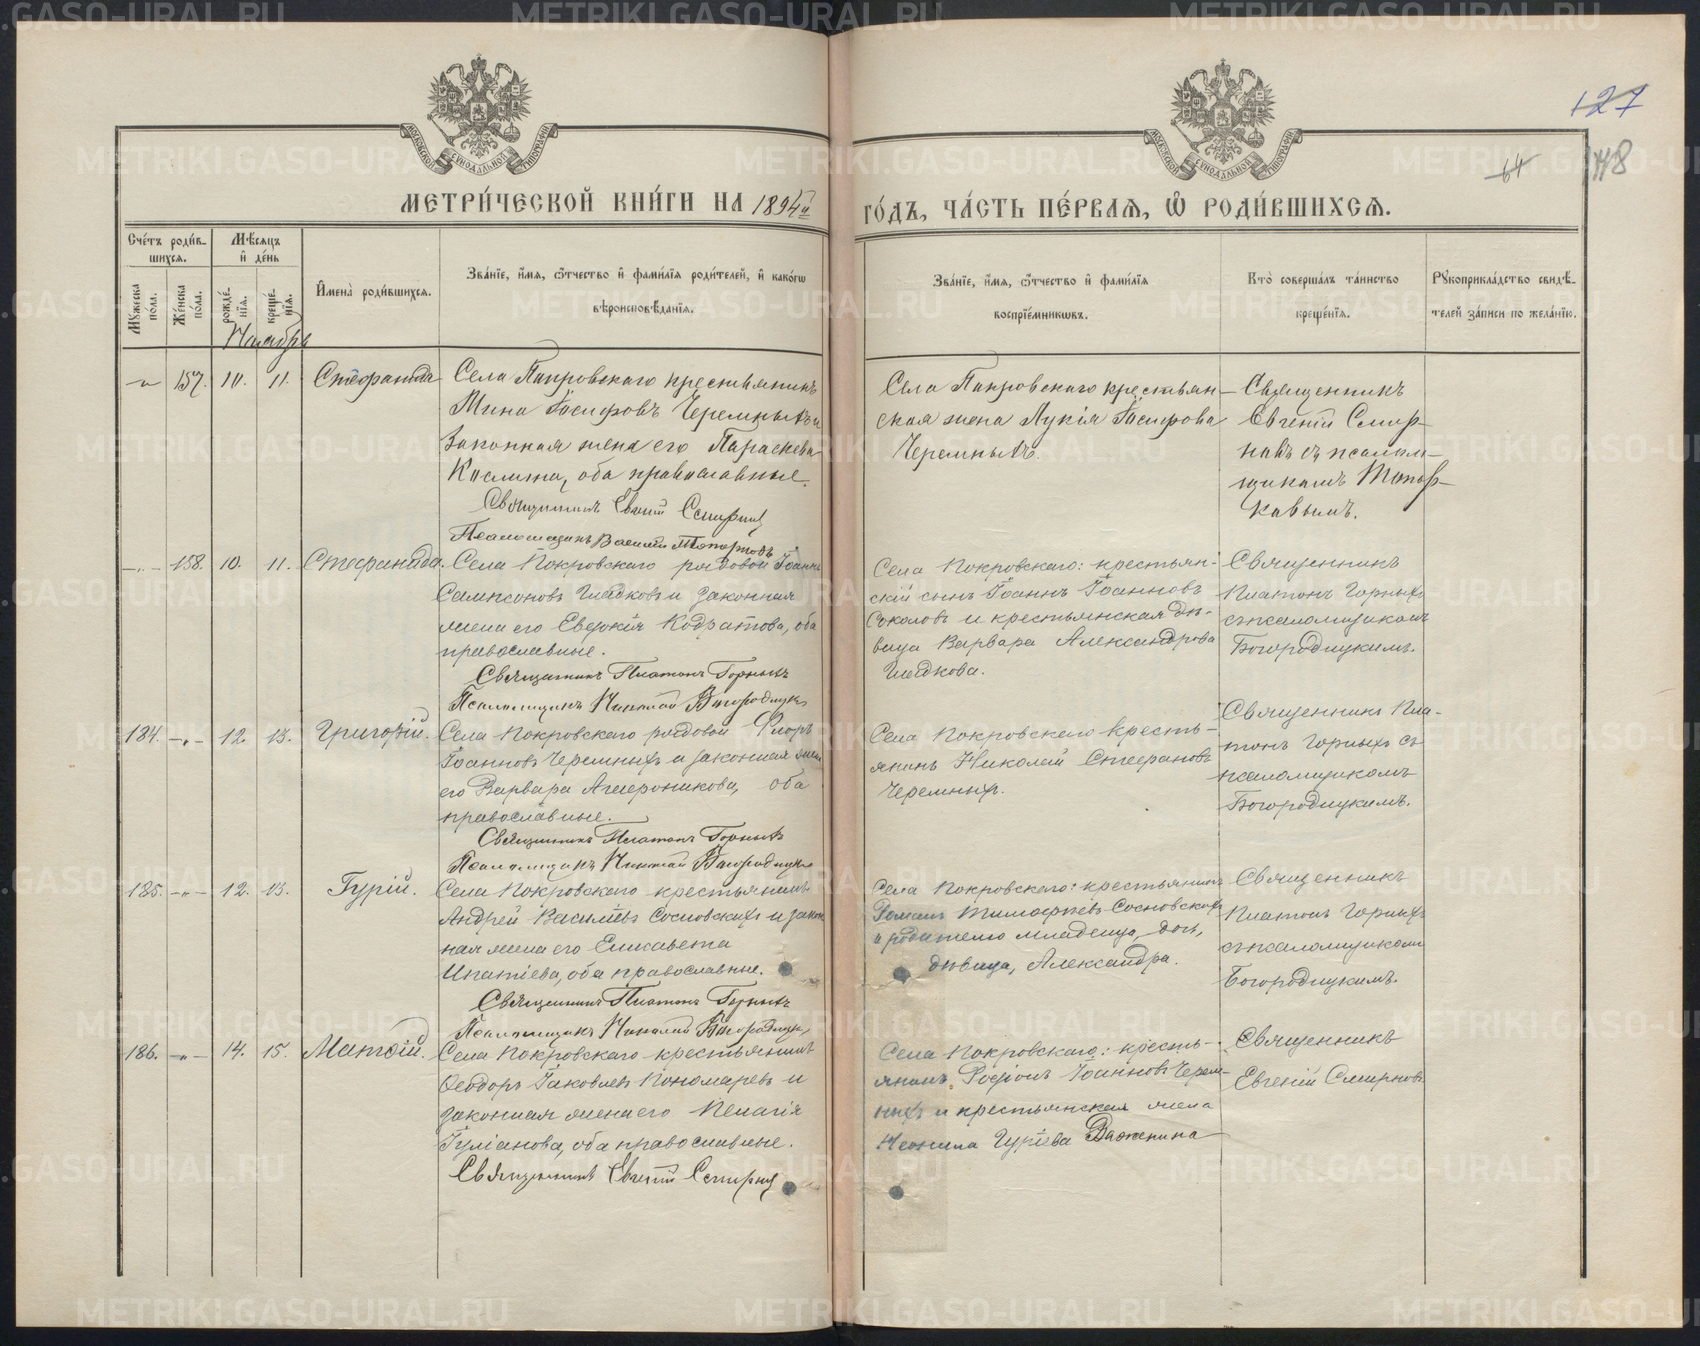 METRIKI.GASO-URAL.RU
127
64
118
МОСКОВСКОЙ СѴНОДАЛЬНОЙ ТИПОГРАФІИ
МЕТРИ́ЧЕСКОЙ КНИ́ГИ НА 1894й
ГО́ДЪ, ЧА́СТЬ ПЕ́РВАЯ, Ѡ РОДИ́ВШИХСЯ.
Сче́тъ роди́вшихся.
Му́жеска по́ла.
Же́нска по́ла.
Мѣ́сяцъ и де́нь
рожде́нія.
креще́нія.
Имена̀ роди́вшихся.
Зва́ніе, и́мя, ѻ҆́тчество и фами́лія роди́телей, и како́гѡ
вѣроисповѣ́данія.
Зва́ніе, и́мя, ѻ҆́тчество и фами́лія
воспріе́мникѡвъ.
Кто̀ соверша́лъ та́инство
креще́нія.
Рукоприкла́дство свидѣ́-
телей за́писи по жела́нію.
Ноябрь
157. 10. 11. Стефанида
Села Покровскаго крестьянинъ
Мина Іосифовъ Черемныхъ и
законная жена его Параскева
Космина, оба православные.
Священникъ Евгеній Смирновъ
Псаломщикъ Василій Топорковъ
Села Покровскаго крестьян-
ская жена Лукія Іосифова
Черемныхъ.
Священникъ
Евгеній Смир-
новъ съ псалом-
щикомъ Топор-
ковымъ.
158. 10. 11. Стефанида.
Села Покровскаго рядовой Іоаннъ
Сампсоновъ Гладковъ и законная
жена его Евдокія Кодратова, оба
православные.
Священникъ Платонъ Горныхъ
Псаломщикъ Николай Богородицкій
Села Покровскаго: крестьян-
скій сынъ Іоаннъ Іоанновъ
Соколовъ и крестьянская дѣ-
вица Варвара Александрова
Гладкова.
Священникъ
Платонъ Горныхъ
съ псаломщикомъ
Богородицкимъ.
184. 12. 13. Григорій.
Села Покровскаго рядовой Флоръ
Іоанновъ Черемныхъ и законная жена
его Варвара Агаѳоникова, оба
православные.
Священникъ Платонъ Горныхъ
Псаломщикъ Николай Богородицкій
Села Покровскаго кресть-
янинъ Николай Стефановъ
Черемныхъ.
Священникъ Пла-
тонъ Горныхъ съ
псаломщикомъ
Богородицкимъ.
185. 12. 13. Гурій.
Села Покровскаго крестьянинъ
Андрей Васильевъ Сосновскихъ и закон
ная жена его Елисавета
Ипатіева, оба православные.
Священникъ Платонъ Горныхъ
Псаломщикъ Николай Богородицкій
Села Покровскаго: крестьянинъ
Романъ Тимофеевъ Сосновскихъ
и родителю младенца, дочь,
дѣвица, Александра.
Священникъ
Платонъ Горныхъ
съ псаломщикомъ
Богородицкимъ.
186. 14. 15. Матѳій.
Села Покровскаго крестьянинъ
Ѳеодоръ Іаковлевъ Пономаревъ и
законная жена его Пелагія
Іуліанова, оба православные.
Священникъ Евгеній Смирновъ
Села Покровскаго: кресть-
янинъ Родіонъ Іоанновъ Черем-
ныхъ и крестьянская жена
Неонила Гуріева
Священникъ
Евгеній Смирновъ